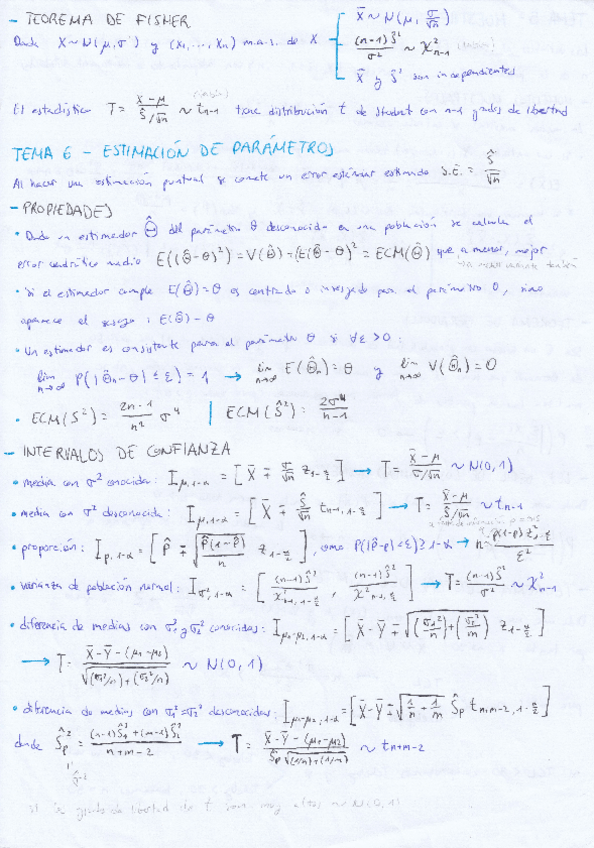 - TEOREMA DE FISHER
X̄ ~ N(μ, σ/√n)
Dada X~N(μ,σ) y (X₁,...,Xn) m.a.s. de X
(n-1)Ŝ²/σ² ~ χ²n-1
X̄ y Ŝ² son independientes
El estadístico T = (X̄-μ)/(Ŝ/√n) ~ tn-1 tiene distribución t de Student con n-1 grados de libertad
TEMA 6 - ESTIMACIÓN DE PARÁMETROS
Al hacer una estimación puntual se comete un error estándar estimado S.E. = Ŝ/√n
- PROPIEDADES
• Dado un estimador Θ̂ del parámetro θ desconocido en una población se calcula el
error cuadrático medio E((Θ̂-θ)²) = V(Θ̂) + (E(Θ̂-θ))² = ECM(Θ̂) que a menor, mejor
• Si el estimador cumple E(Θ̂)=θ es centrado o insesgado para el parámetro θ, sino
aparece el sesgo: E(Θ̂)-θ
• Un estimador es consistente para el parámetro θ si ∀ε>0:
lim n→∞ P(|Θ̂n-θ| ≤ ε) = 1 → lim n→∞ E(Θ̂n) = θ y lim n→∞ V(Θ̂n) = 0
• ECM(S²) = (2n-1)/n² σ⁴ | ECM(Ŝ²) = 2σ⁴/(n-1)
- INTERVALOS DE CONFIANZA
• media con σ² conocida: I μ,1-α = [X̄ ∓ σ/√n z1-α/2] → T = (X̄-μ)/(σ/√n) ~ N(0,1)
• media con σ² desconocida: I μ,1-α = [X̄ ∓ Ŝ/√n tn-1,1-α/2] → T = (X̄-μ)/(Ŝ/√n) ~ tn-1
• proporción: I p,1-α = [P̂ ∓ √(P̂(1-P̂)/n) z1-α/2], como P(|P̂-p|<ε) ≥ 1-α →
• varianza de población normal: I σ²,1-α = [(n-1)Ŝ²/χ²n-1,1-α/2 , (n-1)Ŝ²/χ²n-1,α/2] → T = (n-1)Ŝ²/σ² ~ χ²n-1
• diferencia de medias con σ₁² y σ₂² conocidas: I μ₁-μ₂,1-α = [X̄-Ȳ ∓ √((σ₁²/n)+(σ₂²/m)) z1-α/2]
→ T = (X̄-Ȳ-(μ₁-μ₂))/√((σ₁²/n)+(σ₂²/n)) ~ N(0,1)
• diferencia de medias con σ₁²=σ₂² desconocidas: I μ₁-μ₂,1-α = [X̄-Ȳ ∓ √(1/n+1/m) Ŝp tn+m-2,1-α/2]
donde Ŝp² = ((n-1)Ŝ₁²+(m-1)Ŝ₂²)/(n+m-2) → T = (X̄-Ȳ-(μ₁-μ₂))/(Ŝp √((1/n)+(1/m))) ~ tn+m-2
si grados de libertad de t son muy altos ~ N(0,1)